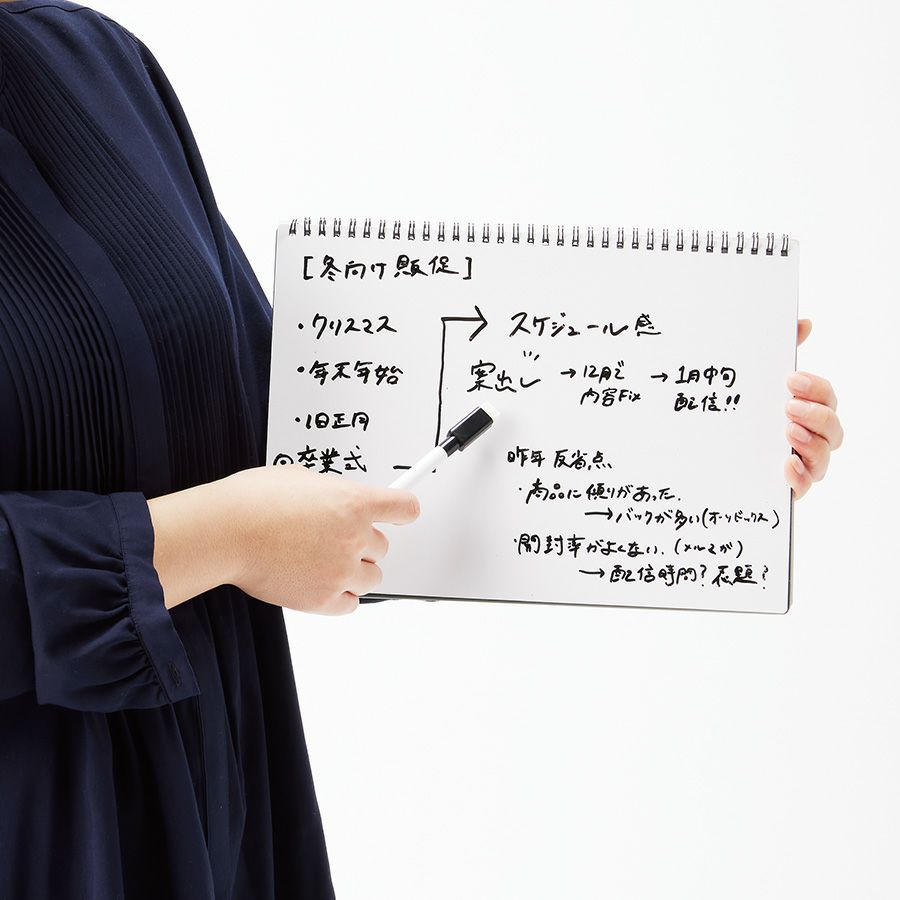 [冬向け販促]
・クリスマス
・年末年始
・旧正月
◎卒業式
スケジュール感
案出し → 12月で内容Fix → 1月中旬配信!!
昨年 反省点
・商品に傾りがあった.
→バックが多い(オソドックス)
・開封率がよくない. (メルマガ)
→配信時間? 表題?